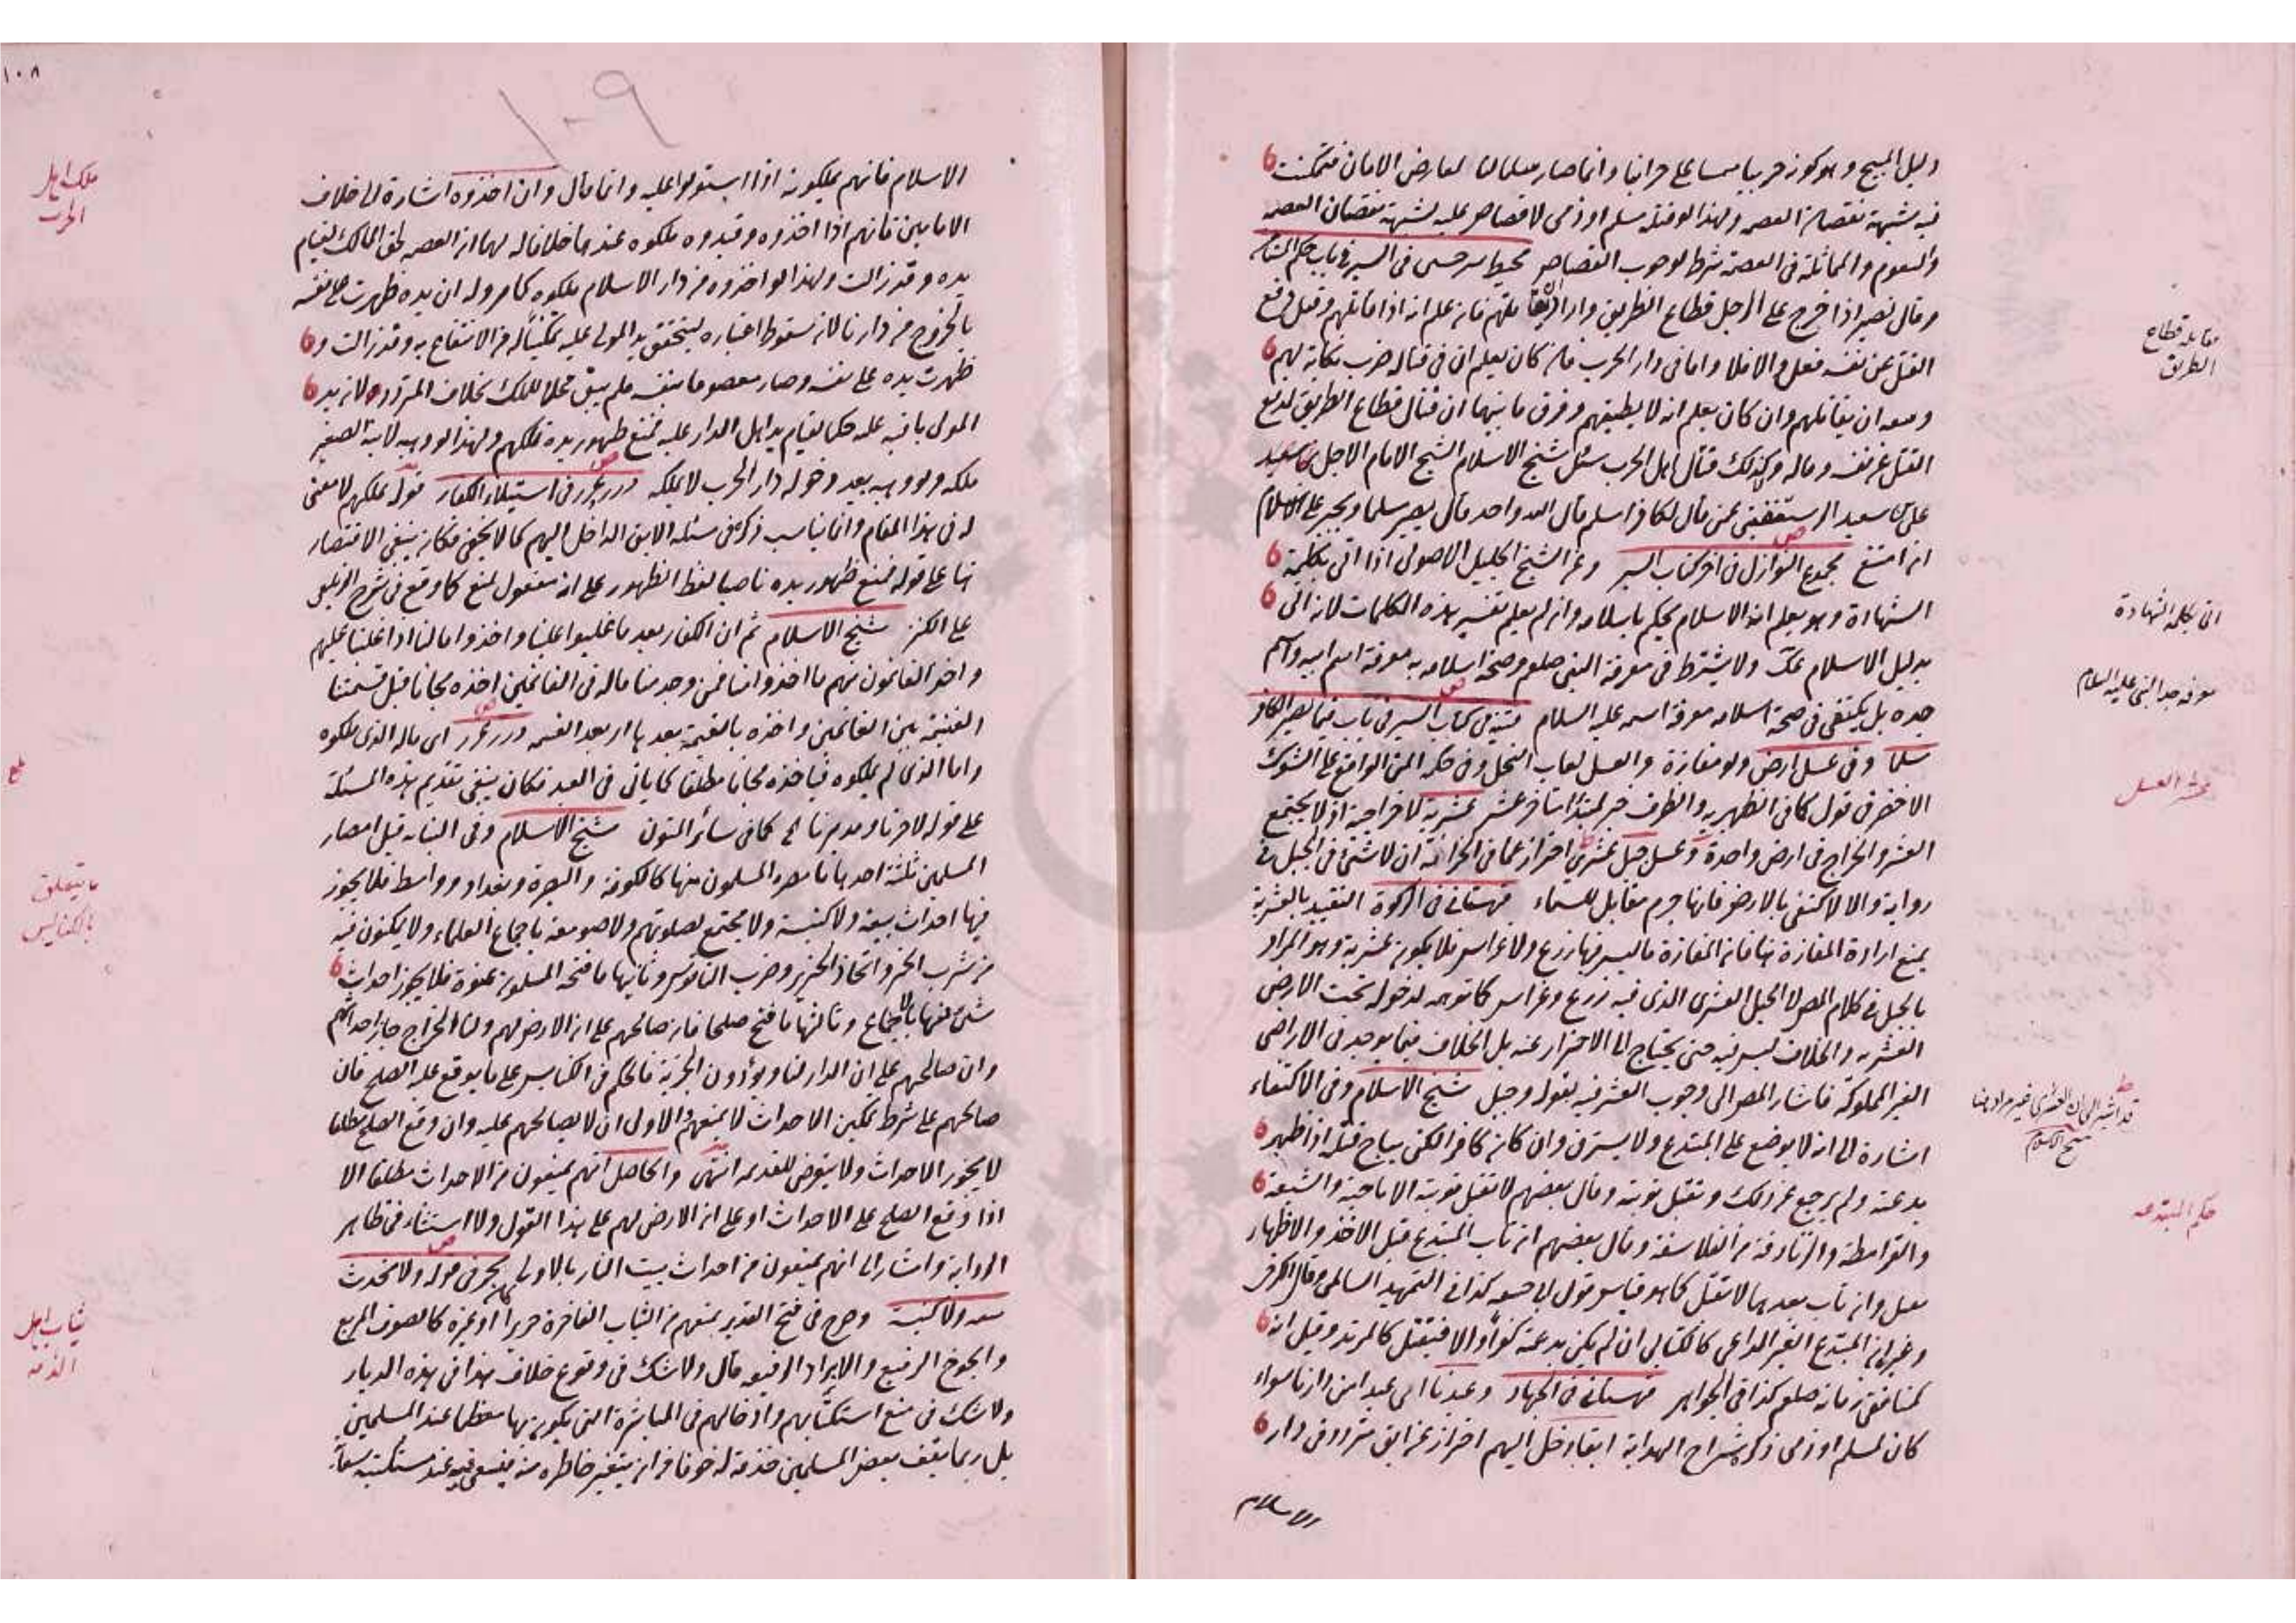 دليل المبيح وهو كونه حربيا وانما صار مسالما لعارض الامان فتمكنت
فيه شبهة نقصان العصمة ولهذا لو قتله مسلم او ذمى لا قصاص عليه لشبهة نقصان العصمة
والمماثلة فى العصمة شرط لوجوب القصاص محيط سرخسى فى السير فى باب حكم
وقال نصير اذا خرج على الرجل قطاع الطريق واراد ان يقاتلهم فانه علم انه اذا قاتلهم وقتل دفع
القتل عن نفسه فعل والا فلا واما فى دار الحرب فانه كان يعلم ان فى قتاله ضرب نكاية لهم
وسعه ان يقاتلهم وان كان يعلم انه لا يطيقهم وفرق ما بينهما ان قتال قطاع الطريق لدفع
القتل عن نفسه وماله وكذلك قتال اهل الحرب سئل شيخ الاسلام الشيخ الامام الاجل
على بن سعيد الرستغفنى عمن قال لكافر اسلم قال الله واحد قال يصير مسلما ويجبر على الاسلام
ان امتنع مجموع النوازل فى اخر كتاب السير وعن الشيخ الجليل الاصولى اذا اتى بكلمة
الشهادة وهو يعلم انه الاسلام يحكم باسلامه وان لم يعلم تفسير هذه الكلمات لانه اتى
بدليل الاسلام ولا يشترط فى معرفة النبى صلعم وصحة اسلامه به معرفة اسم ابيه واسم
جده بل يكتفى فى صحة اسلامه معرفة اسمه عليه السلام قنية فى كتاب السير فى باب فيما يصير الكافر
مسلما وفى عسل ارض ولو مفازة والعسل لعاب النحل وفى حكمه المن الواقع على الشوك
الاخضر فى قول كما فى الظهيرية والظرف خبر لمبتدا عشر عشرية لا خراجية اذ لا يجتمع
العشر والخراج فى ارض واحدة وعسل جبل عشرى احتراز عما فى الخزانة ان لا شئ فى الجبل فى
رواية والا لاكتفى بالارض فانها جرم مقابل للسماء قهستانى فى الزكوة التقييد بالعشرية
يمنع ارادة المفازة هنا فان المفازة ما ليس فيها زرع ولا غراس فلا يكون عشرية وهو المراد
بالجبل فى كلام المص لا الجبل العشرى الذى فيه زرع وغراس كما توهمه لدخوله تحت الارض
العشرية والخلاف ليس فيه حتى يحتاج الى الاحتراز عنه بل الخلاف فيما يوجد فى الاراضى
الغير المملوكة فاشار المص الى وجوب العشر فيه بقوله وجبل شيخ الاسلام وفى الاكتفاء
اشارة الى انه لا يوضع على المبتدع ولا يسترق وان كان كافرا لكن يباح قتله اذا ظهر
بدعته ولم يرجع عن ذلك وتقبل توبته وقال بعضهم لا تقبل توبة الاباحية والشيعة
والقرامطة والزنادقة من الفلاسفة وقال بعضهم ان تاب المبتدع قبل الاخذ والاظهار
تقبل وان تاب بعدهما لا تقبل كما هو قياس قول ابى حنيفة كذا فى التمهيد السالمى
المبتدع الغير الداعى كالكتابى ان لم يكن بدعته كفرا والا فيقتل كالمرتد وقيل انه
كمنافقى زمانه صلعم كذا فى الجواهر قهستانى فى الجهاد وعبدنا اى عبدا من دارنا سواء
كان لمسلم او ذمى ذكره شراح الهداية ابقا دخل اليهم احتراز عن ابق متردد فى دار
الاسلام
مقاتلة قطاع
الطريق
اتى بكلمة الشهادة
معرفة جد النبى عليه السلام
عشر العسل
شيخ الاسلام
حكم المبتدعه
١٠٨
١٠٩
الاسلام فانهم يملكونه اذا استولوا عليه وانما قال وان اخذوه اشارة الى خلاف
الامامين فانهم اذا اخذوه وقيدوه ملكوه عندهما خلافا له لهما ان العصمة لحق المالك لقيام
يده وقد زالت ولهذا لو اخذوه من دار الاسلام ملكوه كما مر وله ان يده ظهرت على نفسه
بالخروج من دارنا لان سقوط اعتباره ليتحقق يد المولى عليه تمكينا له من الانتفاع به وقد زالت و
ظهرت يده على نفسه وصار معصوما بنفسه فلم يبق محلا للملك بخلاف المتردد لان يد
المولى باقية عليه حكما لقيام يد اهل الدار عليه فمنع ظهور يده فملكهم ولهذا لو وهبه لابنه الصغير
ملكه ولو وهبه بعد دخوله دار الحرب لا يملكه درر غرر فى استيلاء الكفار قوله فملكهم لا معنى
له فى هذا المقام وانما يناسب ذكره فى مسئلة الابق الداخل اليهم كما لا يخفى فكان ينبغى الاقتصار
هنا على قوله فمنع ظهور يده ناصبا لفظ الظهور على انه مفعول لمنع كما وقع فى شرح الزيلعى
على الكنز شيخ الاسلام ثم ان الكفار بعد ما غلبوا علينا واخذوا اموالنا اذا غلبنا عليهم
واخذ الغانمون منهم ما اخذوا منا فمن وجد منا ماله فى الغانمين اخذه مجانا قبل قسمتنا
الغنيمة بين الغانمين واخذه بالقيمة بعدها اى بعد القسمة درر غرر اى ماله الذى ملكوه
واما الذى لم يملكوه فياخذه مجانا مطلقا كما ياتى فى العبد فكان ينبغى تقديم هذه المسئلة
على قوله لا حرنا ومدبرنا الخ كما فى سائر المتون شيخ الاسلام وفى البناية قيل امصار
المسلمين ثلثة احدها ما مصره المسلمون منها كالكوفة والبصرة وبغداد وواسط فلا يجوز
فيها احداث بيعة ولا كنيسة ولا مجتمع لصلوتهم ولا صومعة باجماع العلماء ولا يمكنون فيه
من شرب الخمر واتخاذ الخنزير وضرب الناقوس وثانيها ما فتحه المسلمون عنوة فلا يجوز احداث
شئ فيها بالاجماع وثالثها ما فتح صلحا فان صالحهم على ان الارض لهم ولنا الخراج جاز احداثهم
وان صالحهم على ان الدار لنا ويؤدون الجزية فالحكم فى الكنايس على ما يوقع عليه الصلح فان
صالحهم على شرط تمكين الاحداث لا يمنعهم والاولى ان لا يصالحهم عليه وان وقع الصلح مطلقا
لا يجوز الاحداث ولا يتعرض للقديمة انتهى والحاصل انهم يمنعون من الاحداث مطلقا الا
اذا وقع الصلح على الاحداث او على ان الارض لهم على هذا القول ولا استثناء فى ظاهر
الرواية واشار الى انهم يمنعون من احداث بيت النار بالاولى بحر فى قوله ولا يحدث
بيعه ولا كنيسة وصرح فى فتح القدير بمنعهم من الثياب الفاخرة حريرا او غيره كالصوف المربع
والجوخ الرفيع والابراد الرفيعه قال ولا شك فى وقوع خلاف هذا فى هذه الديار
ولا شك فى منع استكتابهم وادخالهم فى المباشرة التى يكون بها معظما عند المسلمين
بل ربما يقف بعض المسلمين خدمة له خوفا من ان يتغير خاطره منه فيسعى فيه عند مستكتبه سعاية
ملك اهل
الحرب
ما يتعلق
بالكنايس
ثياب اهل
الذمه